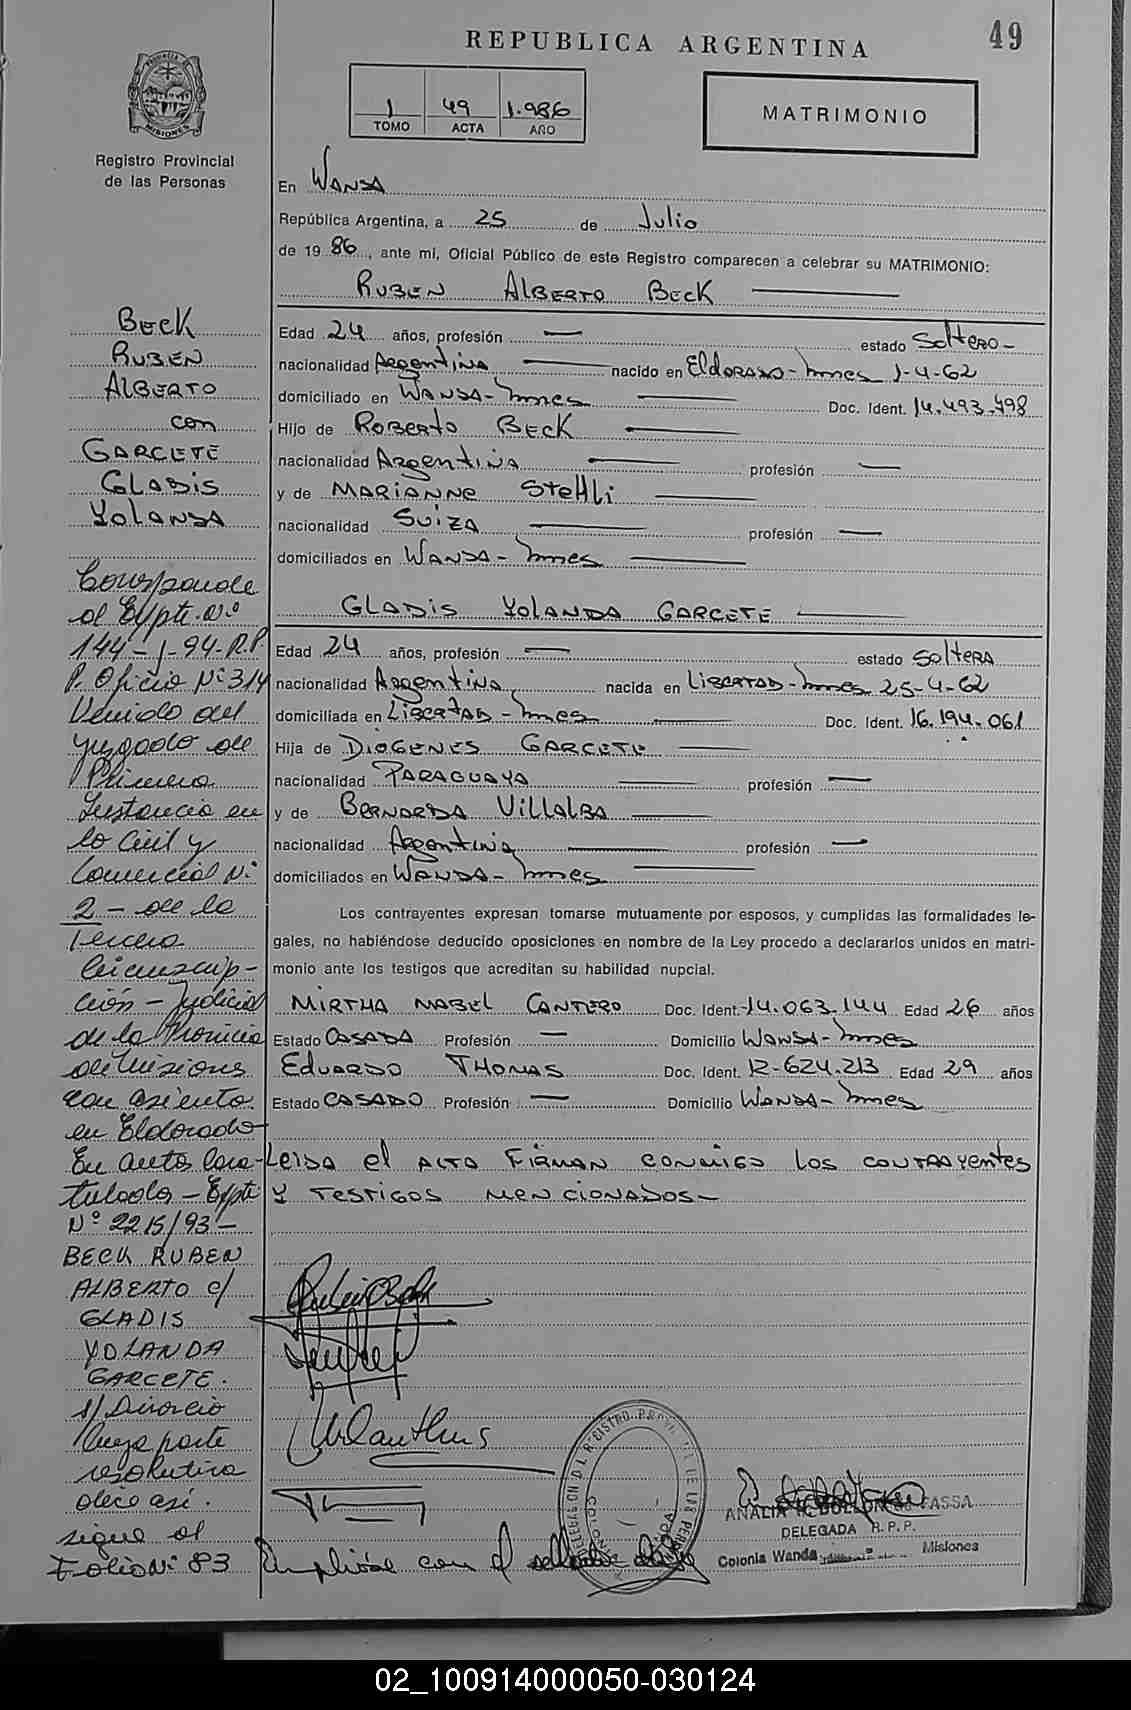 REPUBLICA ARGENTINA
49
1 49 1.986
TOMO ACTA AÑO
MATRIMONIO
MISIONES
Registro Provincial
de las Personas
En WANDA
República Argentina, a 25 de Julio
de 19 86, ante mi, Oficial Público de este Registro comparecen a celebrar su MATRIMONIO:
RUBEN ALBERTO BECK
Edad 24 años, profesión — estado SOLTERO-
nacionalidad Argentina nacido en ELDORADO-Mnes 1-4-62
domiciliado en WANDA-Mnes Doc. Ident. 14.493.498
Hijo de ROBERTO BECK
nacionalidad Argentina profesión —
y de MARIANNE STEHLI
nacionalidad SUIZA profesión —
domiciliados en WANDA-Mnes
GLADIS YOLANDA GARCETE
Edad 24 años, profesión — estado SOLTERA
nacionalidad Argentina nacida en LIBERTAD-Mnes 25-4-62
domiciliada en LIBERTAD-Mnes Doc. Ident. 16.194.061
Hija de DIOGENES GARCETE
nacionalidad PARAGUAYA profesión —
y de BERNARDA VILLALBA
nacionalidad Argentina profesión —
domiciliados en WANDA-Mnes
Los contrayentes expresan tomarse mutuamente por esposos, y cumplidas las formalidades le-
gales, no habiéndose deducido oposiciones en nombre de la Ley procedo a declararlos unidos en matri-
monio ante los testigos que acreditan su habilidad nupcial.
MIRTHA MABEL CANTERO Doc. Ident. 14.063.144 Edad 26 años
Estado CASADA Profesión — Domicilio WANDA-Mnes
EDUARDO THOMAS Doc. Ident. 12-624.213 Edad 29 años
Estado CASADO Profesión — Domicilio WANDA-Mnes
LEIDA el ACTA FIRMAN CONMIGO LOS CONTRAYENTES
Y TESTIGOS MENCIONADOS-
BECK
RUBEN
ALBERTO
con
GARCETE
GLADIS
YOLANDA
Corresponde
al Expte. Nº
144-J-94-R.P.
P. Oficio Nº 314
Venido del
Juzgado de
Primera
Instancia en
lo Civil y
Comercial Nº
2 - de la
Tercera
Circunscrip-
ción - Judicial
de la Provincia
de Misiones
con asiento
en Eldorado
En autos Cara-
tulados - Expte
Nº 2215/93-
BECK RUBEN
ALBERTO c/
GLADIS
YOLANDA
GARCETE.
s/ Divorcio
Cuya parte
resolutiva
dice así.
sigue al
Folio Nº 83
DELEGADA R.P.P.
Colonia Wanda Misiones
02_100914000050-030124